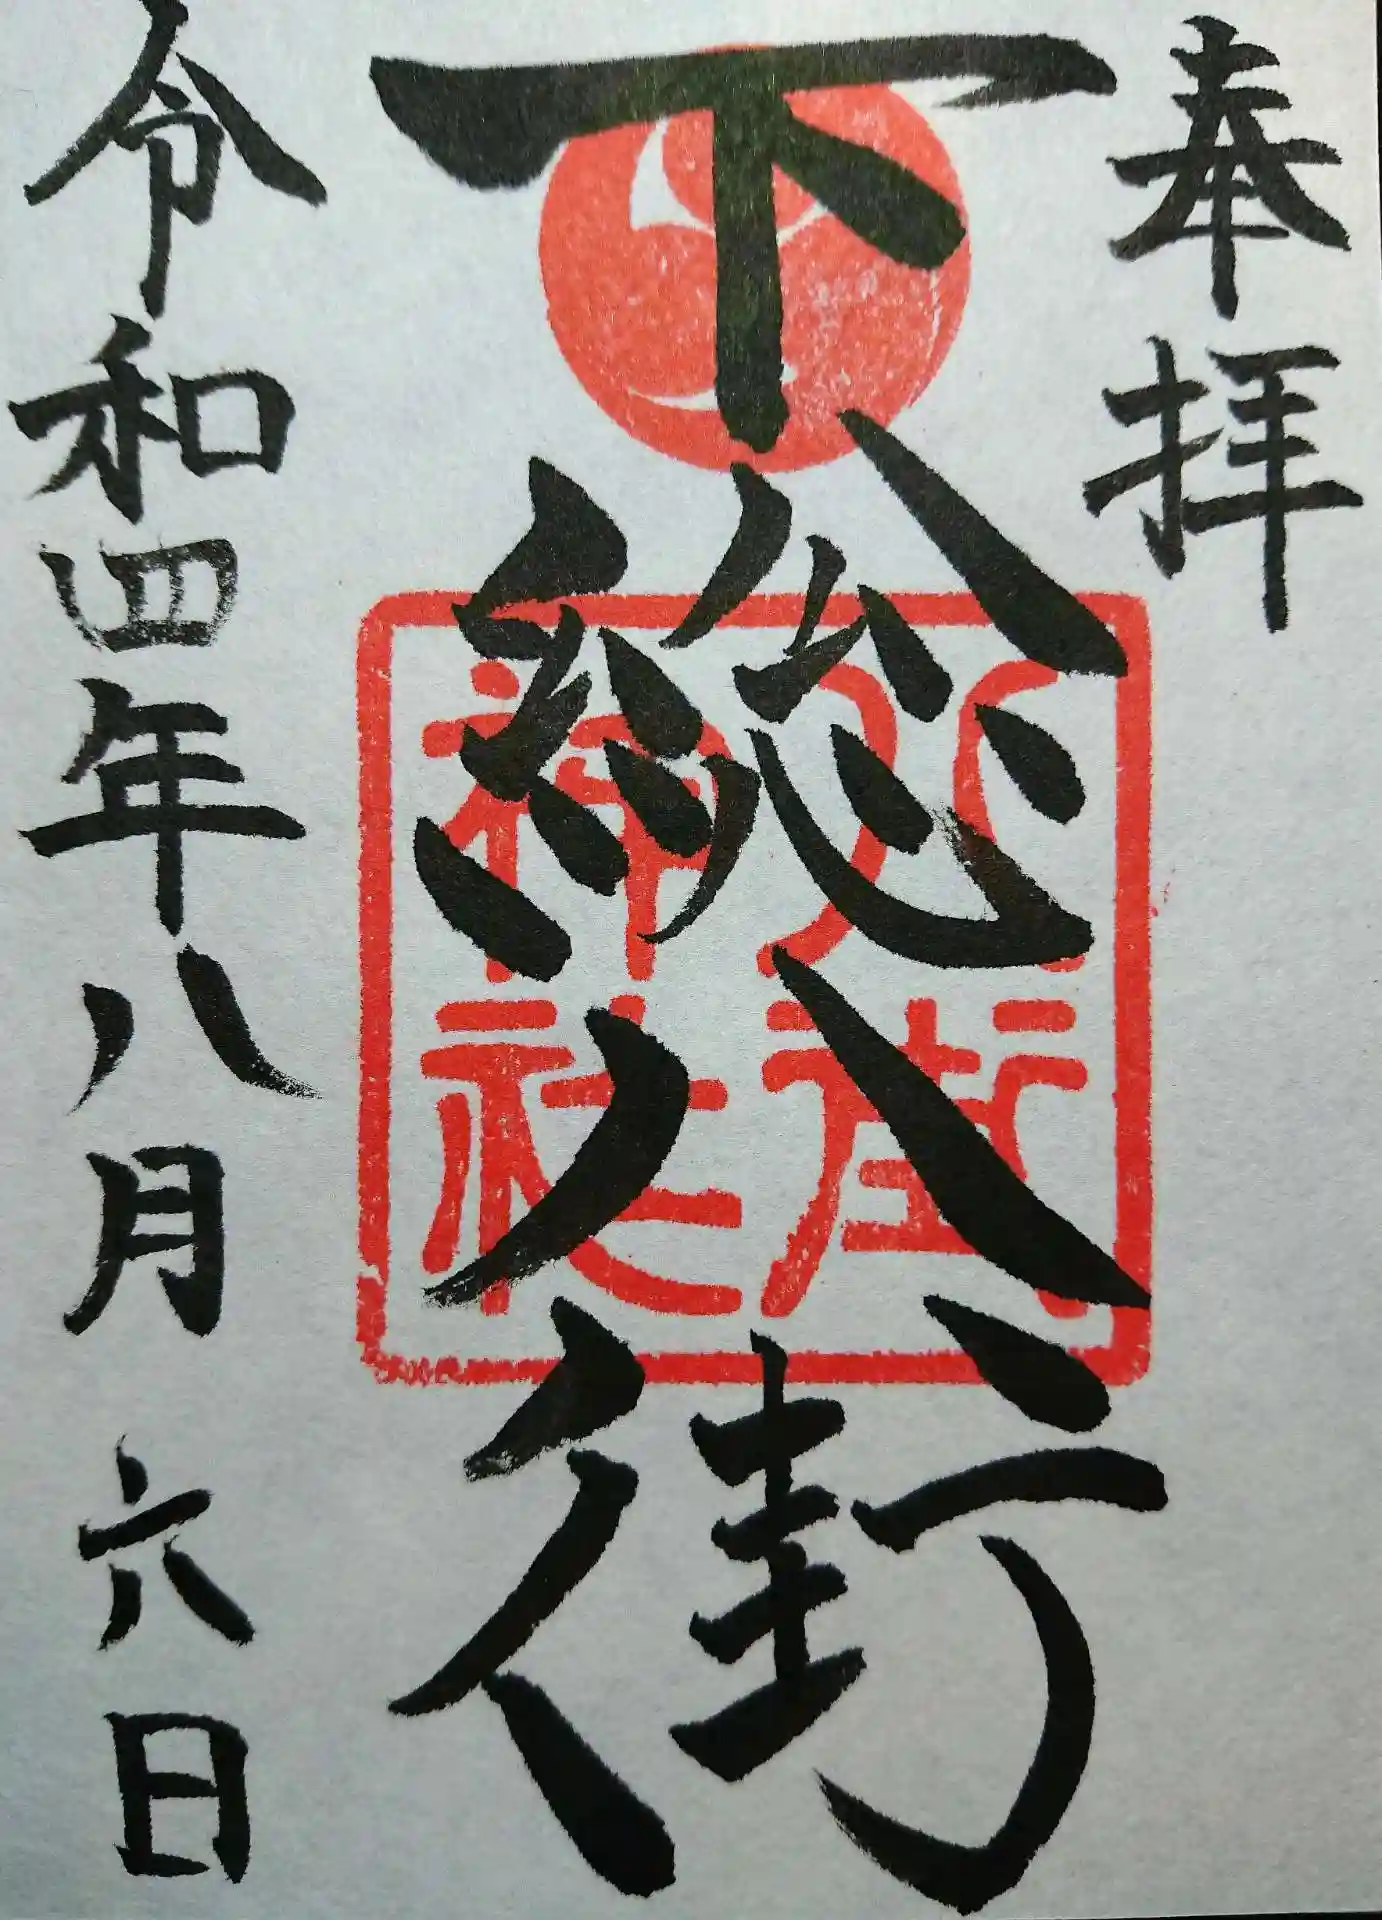 奉拝
下総八街
八街神社
令和四年八月六日